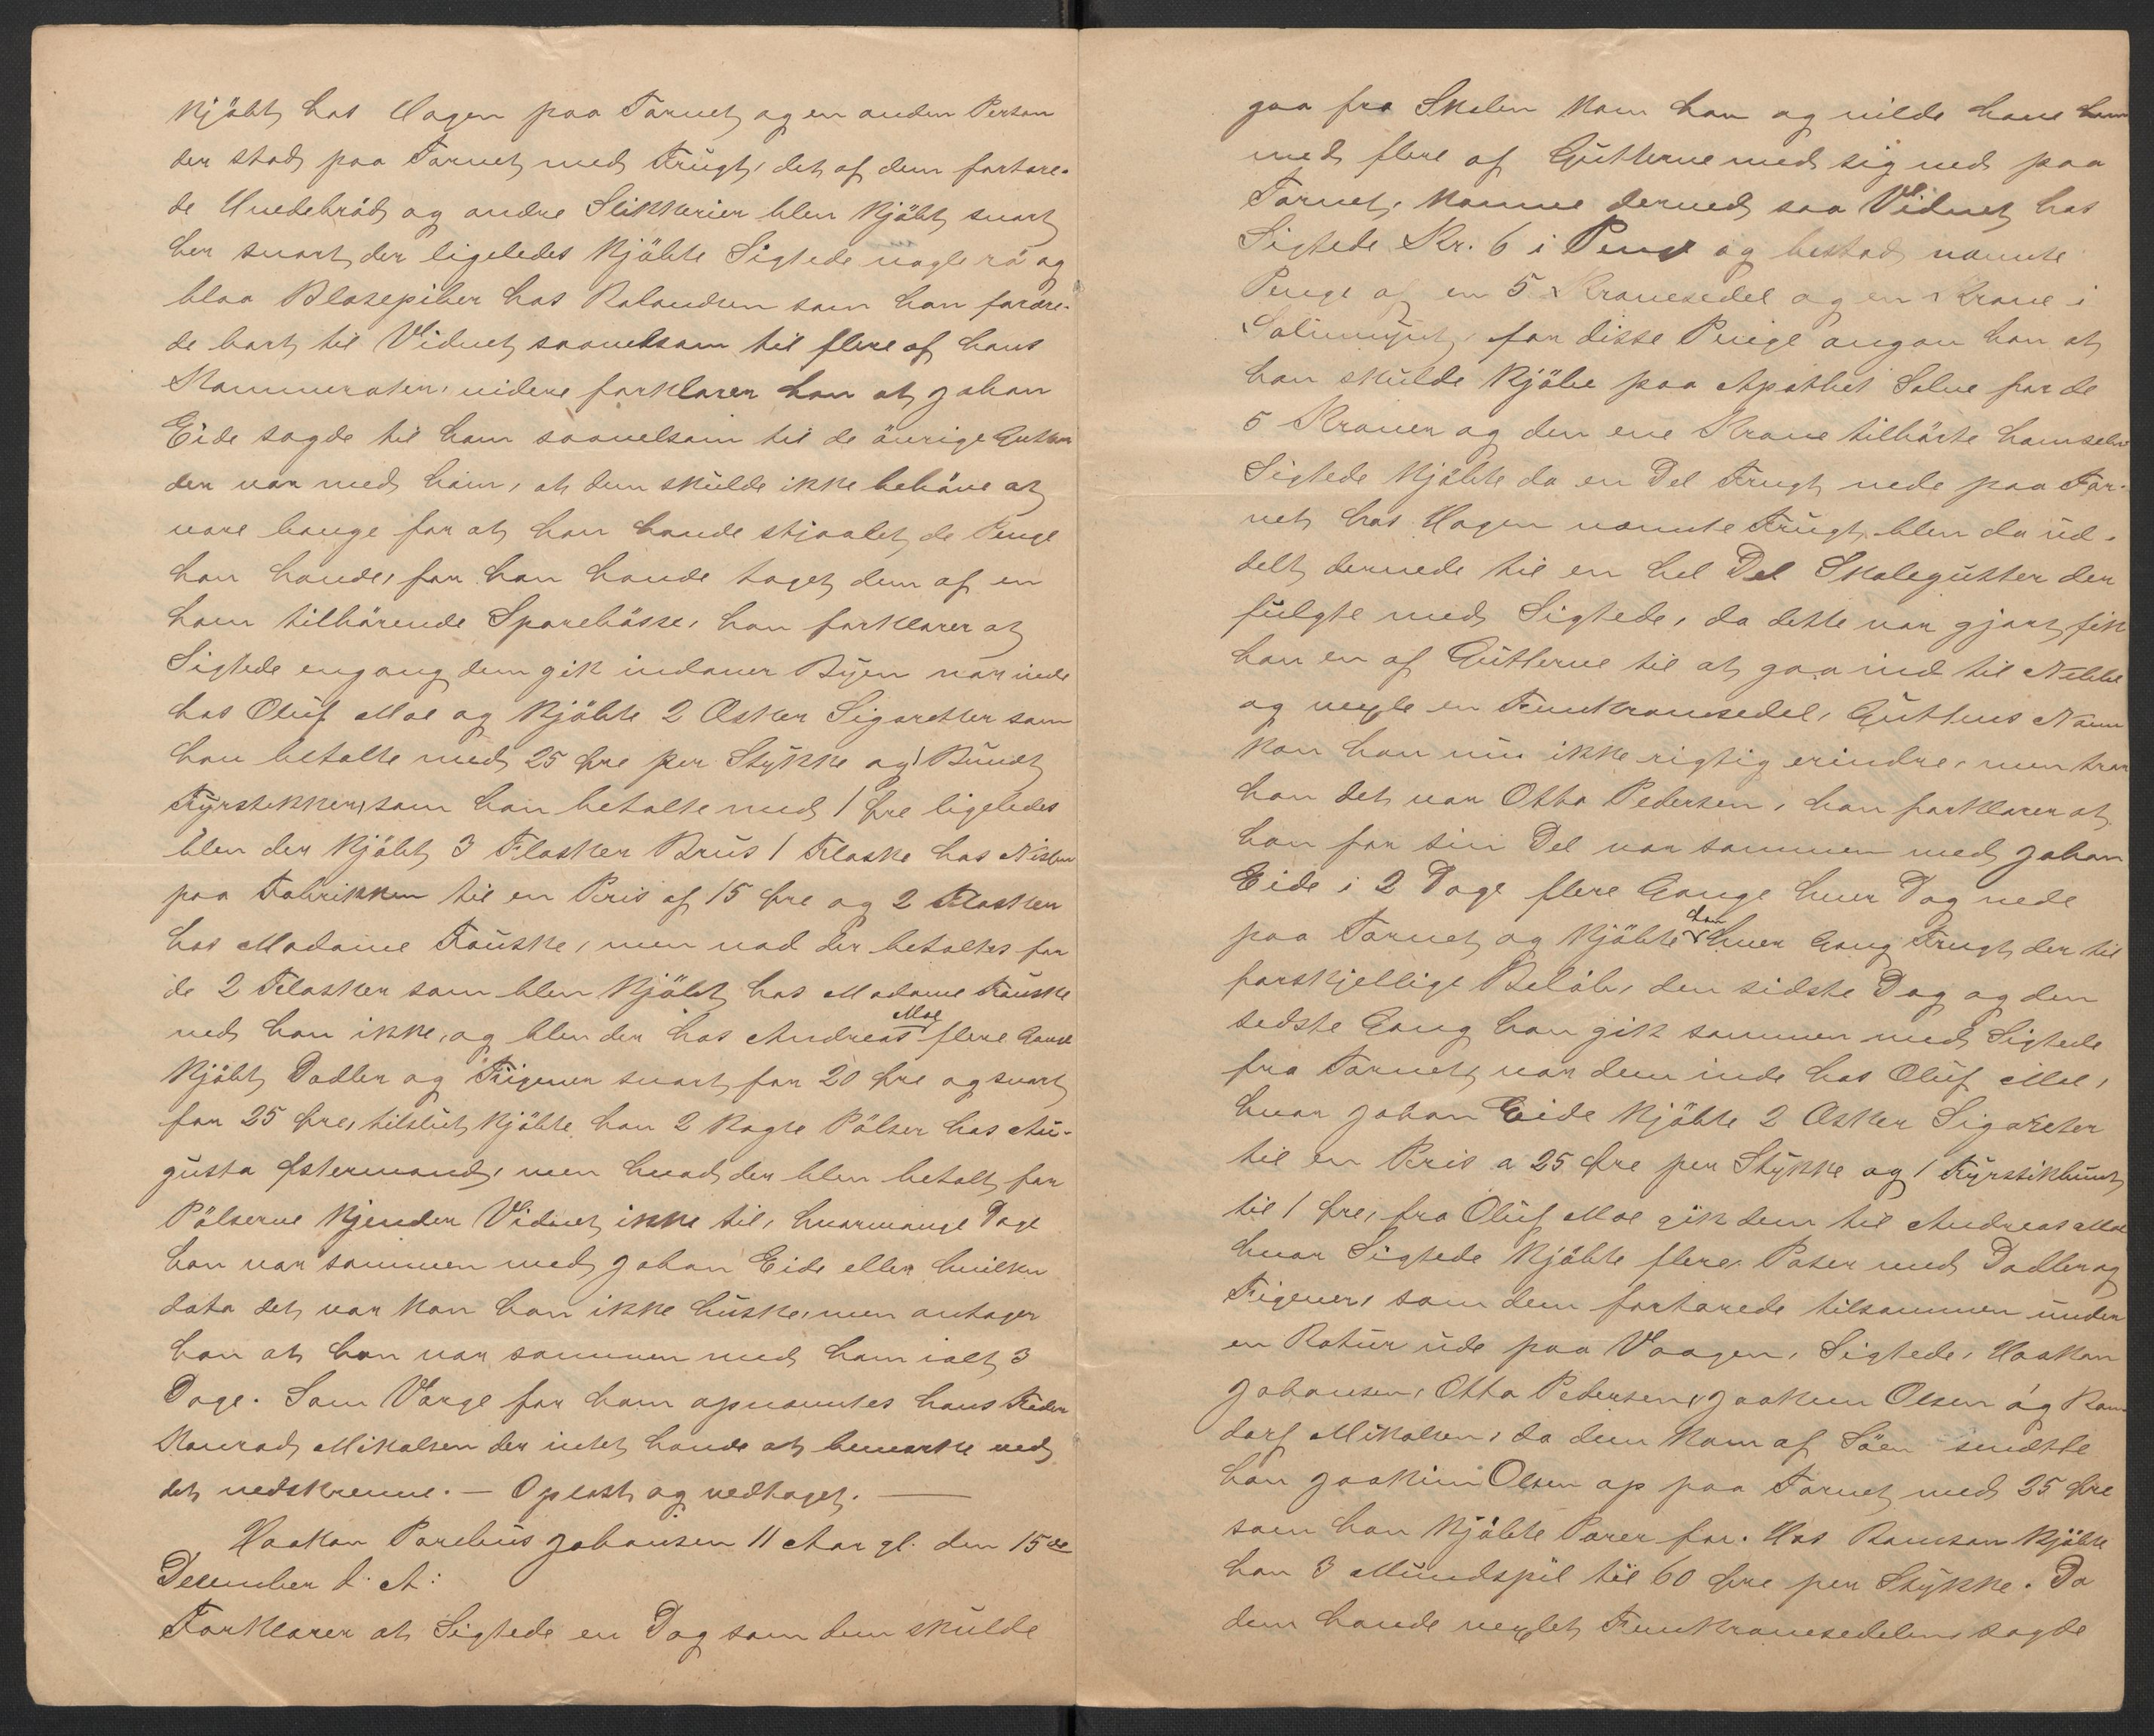 kjöbt hos Hagen paa Torvet og en anden Person
der stod paa Torvet med Frugt, det af dem fortære-
de Hvedebröd og andre Slikkerier blev kjöbt snart
her snart der ligeledes kjöbte Sigtede nogle rö og
blaa Blasepiber hos Rolandsen som han forære-
de bort til Vidnet saavelsom til flere af hans
Kammerater, videre forklarer han at Johan
Eide sagde til ham saavelsom til de övrige Gutter
der var med ham, at dem skulde ikke behöve at
være bange for at han havde stjaalet de Penge
han havde, for han havde taget dem af en
ham tilhörende Sparebösse, han forklarer at
Sigtede engang dem gik indover Byen var inde
hos Oluf Moe og kjöbte 2 Æsker Sigaretter som
han betalte med 25 Øre per Stykke og 1 Bundt
Fyrstikker, som han betalte med 1 Øre ligeledes
blev der kjöbt 3 Flasker Brus 1 Flaske hos
paa Fabrikken til en Pris af 15 Øre og 2 Flasker
hos Madame Fauske, men vad der betaltes for
de 2 Flasker som blev kjöbt hos Madame Fauske
ved han ikke, og blev der hos Andreas Moe flere Gange
kjöbt Dadler og Figener snart for 20 Øre og snart
for 25 Øre, tilslut kjöbte han 2 kogte Pölser hos Au-
gusta Østermand, men hvad der blev betalt for
Pölserne kjender Vidnet ikke til, hvormange Dage
han var sammen med Johan Eide eller hvilken
dato det var kan han ikke huske, men antager
han at han var sammen med ham ialt 3
Dage. Som Værge for ham opnævntes hans Fader
Konrad Mikalsen der intet havde at bemærke ved
det nedskrevne. — Oplæst og vedtaget. —
Haakon Parelius Johansen 11 Aar gl. den 15de
December d. A:
Forklarer at Sigtede en Dag som dem skulde
gaa fra Skolen kom han og vilde have ham
med flere af Gutterne med sig ned paa
Torvet, komne derned saa Vidnet hos
Sigtede Kr. 6 i Penge og bestod nævnte
Penge af en 5 Kronesedel og en Krone i
Sölvmynt, for disse Penge angav han at
han skulde kjöbe paa Apothet Salve for de
5 Kroner og den ene Krone tilhörte ham selv
Sigtede kjöbte da en Del Frugt nede paa Tor-
vet hos Hagen nævnte Frugt blev da ud-
delt dernede til en hel Del Skolegutter der
fulgte med Sigtede, da dette var gjort fik
han en af Gutterne til at gaa ind til
og vexle en Femkronesedel, Guttens Navn
kan han nu ikke rigtig erindre, men tror
han det var Otto Pedersen, han forklarer at
han for sin Del var sammen med Johan
Eide i 2 Dage flere Gange hver Dag nede
paa Torvet og kjöbte han hver Gang Frugt der til
forskjellige Belöb, den sidste Dag og den
sedste Gang han gik sammen med Sigtede
fra Torvet, var dem inde hos Oluf Moe,
hvor Johan Eide kjöbte 2 Æsker Sigareter
til en Pris a 25 Øre per Stykke og 1 Fyrstikbundt
til 1 Øre, fra Oluf Moe gik dem til Andreas Moe
hvor Sigtede kjöbte flere Poser med Dadler og
Figener, som dem fortærede tilsammen under
en Rotur ude paa Vaagen, Sigtede, Haakon
Johansen, Otto Pedersen, Joakim Olsen og
dorf Mikalsen, da dem kom af Söen sendtte
han Joakim Olsen op paa Torvet med 25 Øre
som han kjöbte Pærer for. Hos kjöbte
han 3 Mundspil til 60 Øre per Stykke. Da
dem havde vexlet Femkronesedelen sagde